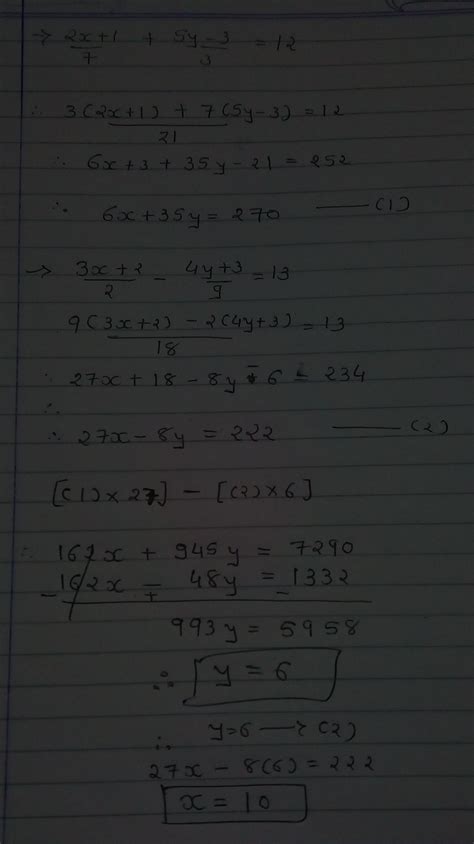 → (2x+1)/7 + (5y-3)/3 = 12
∴ (3(2x+1) + 7(5y-3))/21 = 12
∴ 6x+3 + 35y-21 = 252
∴ 6x+35y = 270 —— (1)
→ (3x+2)/2 - (4y+3)/9 = 13
(9(3x+2) - 2(4y+3))/18 = 13
∴ 27x + 18 - 8y - 6 = 234
∴
∴ 27x - 8y = 222 —— (2)
[(1)×27] - [(2)×6]
∴ 162x + 945y = 7290
- 162x -/+ 48y = - 1332
993y = 5958
∴ y = 6
∴ y=6 → (2)
27x - 8(6) = 222
x = 10